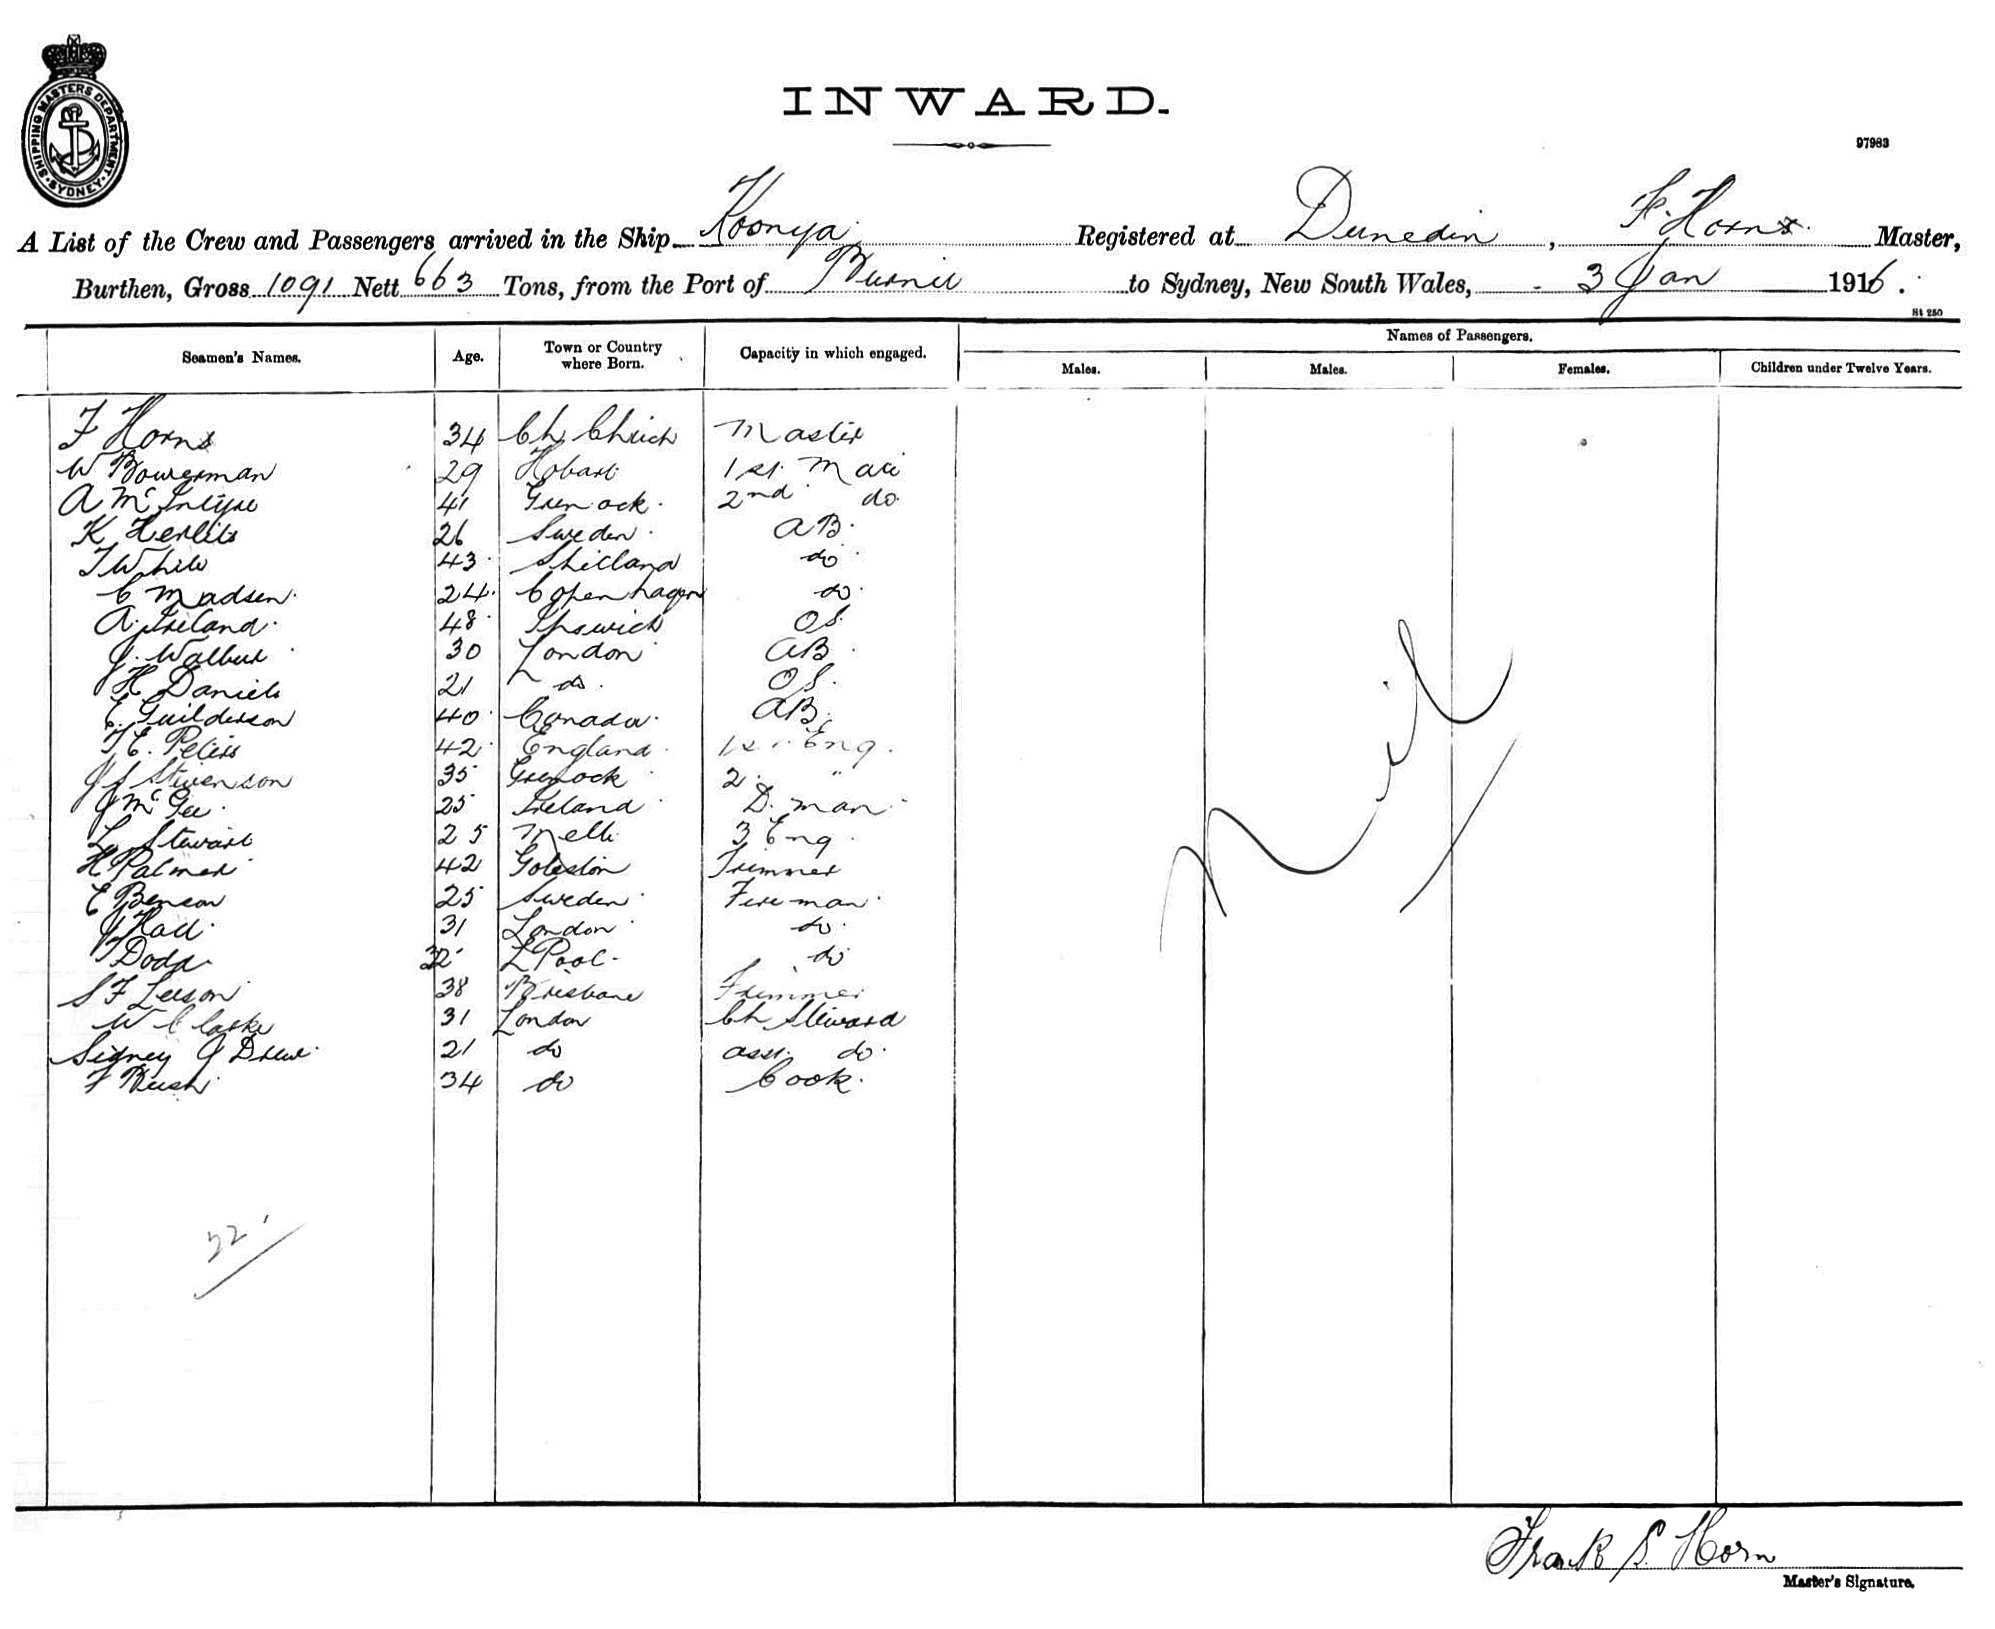 SHIPPING MASTERS DEPARTMENT. SYDNEY.
INWARD.
97983
A List of the Crew and Passengers arrived in the Ship Koonya Registered at Dunedin, F. Horn Master,
Burthen, Gross 1091 Nett 663 Tons, from the Port of Burnie to Sydney, New South Wales, 3 Jan 1916.
St 250
Seamen's Names. Age. Town or Country where Born. Capacity in which engaged. Names of Passengers.
Males. Males. Females. Children under Twelve Years.
F Horn 34 Ch Chrich Master
W Bowerman 29 Hobart 1st Mate
A McIntyre 41 Grenock. 2nd do
K Herlits 26 Sweden. AB.
T White 43 Shetland do
C Madsen. 24 Copenhagen do.
A. Ireland. 48 Ipswich OS.
J. Walbut 30 London AB.
H Daniels 21 do. OS.
E. Guilderson 40 Canada. AB.
T E. Peters 42 England. 1st Eng.
J S Stevenson 35 Grenock 2. "
J McGee. 25 Ireland D. man.
L Stewart 25 Melb. 3 Eng.
H Palmer 42 Goleston Trimmer
E Benson 25 Sweden. Fireman.
J Hall. 31 London do.
T Dodd. 32 L Pool. do
S F Leeson 38 Brisbane Trimmer
W Clarke 31 London Ch Steward
Sidney J Drew. 21 do asst. do.
F Bush. 34 do Cook.
nil
22
Frank S. Horn
Master's Signature.